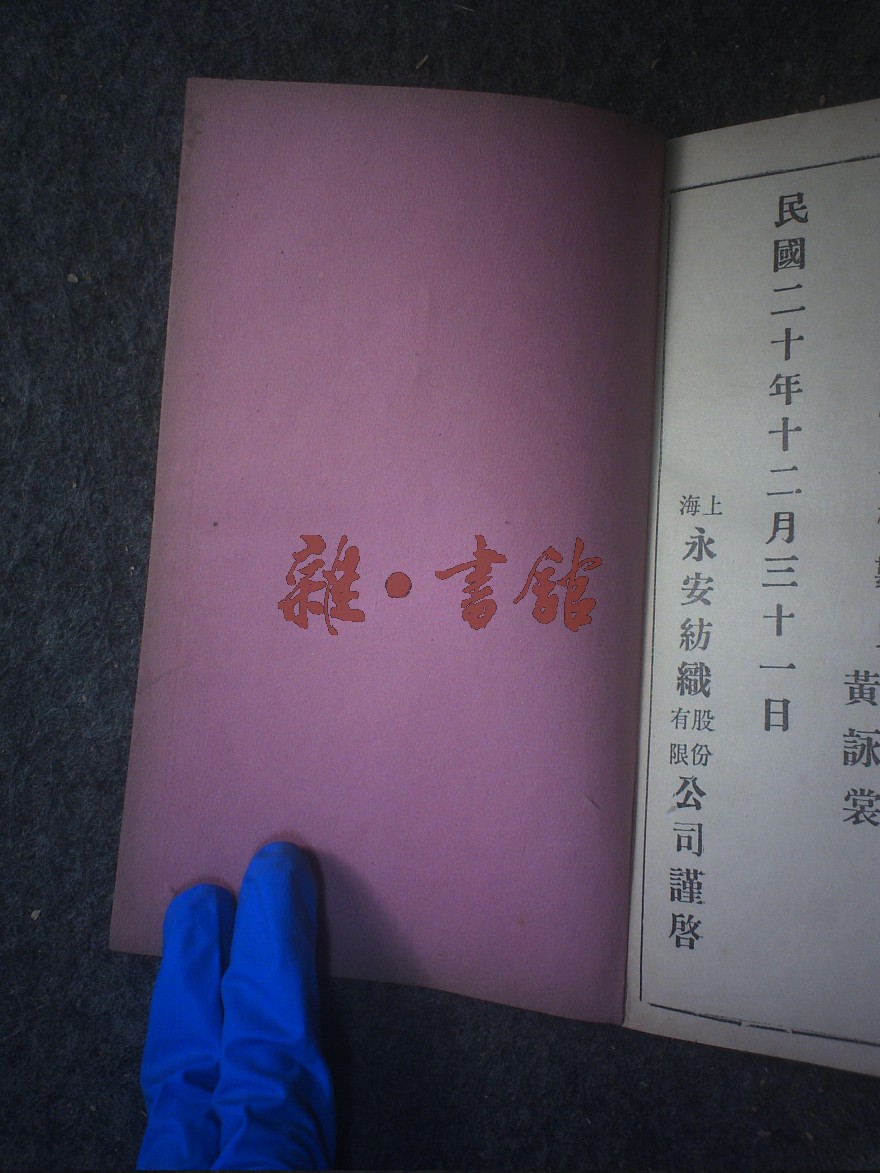 黃詠裳
民國二十年十二月三十一日
上海永安紡織股份有限公司謹啓
雜·書館